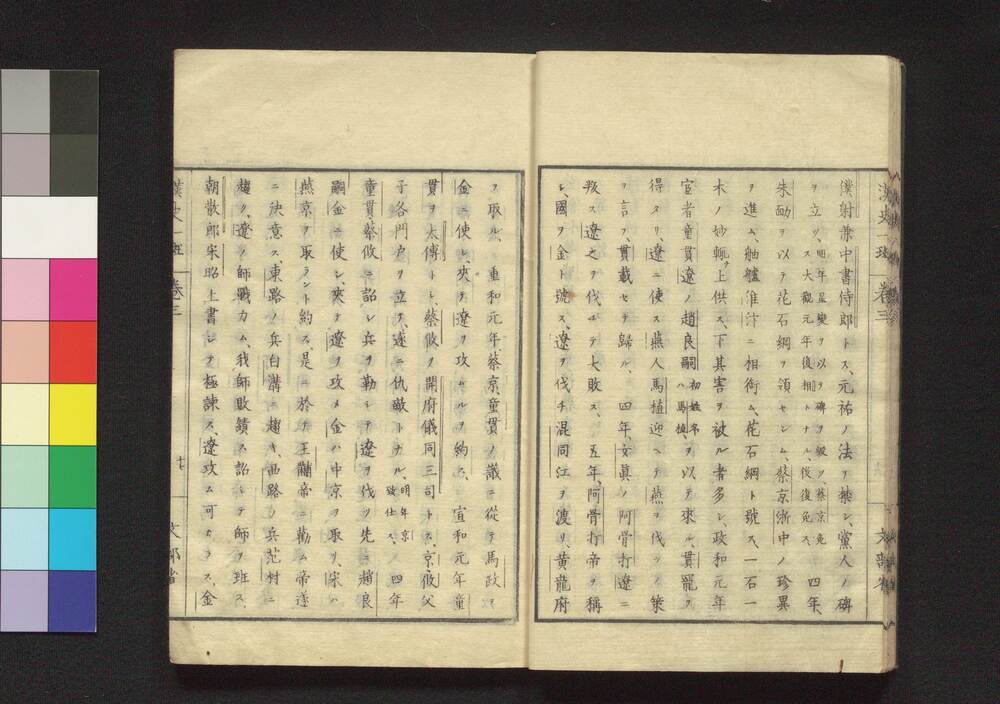 僕射兼中書侍郎トス、元祐ノ法ヲ禁シ、黨人ノ碑
ヲ立ツ、明年星變ヲ以ヲ碑ヲ毀ツ蔡京免
ス大觀元年復相トナル、後復免ス、 四年、
朱勔ヲ以テ花石綱ヲ領セシム、蔡京浙中ノ珍異
ヲ進ム、舳艫淮汴ニ相銜ム、花石綱ト號ス、一石一
木ノ妙輒上供ス、下其害ヲ被ル者多シ、政和元年
宦者童貫遼ノ趙良嗣初姓名ハ馬植、ヲ以テ來ル、貫罷ヲ
得タリ、遼ニ使ス燕人馬植迎ヘテ燕ヲ伐ツノ策
ヲ言フ、貫載セテ歸ル、 四年、女眞ノ阿骨打遼ニ
叛ス遼之ヲ伐ユテ大敗ス、五年、阿骨打帝ヲ稱
シ、國ヲ金ト號ス、遼ヲ伐チ混同江ヲ渡リ、黄龍府
漢史一班 卷三 文部省
ヲ取ル、 重和元年、蔡京、童貫ノ議ニ從テ馬政ヲ
金ニ使シ、夾テ遼ヲ攻ムルヲ約ス、 宣和元年童
貫ヲ太傅トシ、蔡攸ヲ開府儀同三司トス、京攸父
子各門户ヲ立ヲ、遂ニ仇敵トナル、明年京致仕ス、ノ四年
童貫、蔡攸ニ詔シ兵ヲ勒シテ遼ヲ伐ツ先ニ趙良
嗣金ニ使シ、夾テ遼ヲ攻メ金ハ中京ヲ取リ、宋ハ
燕京ヲ取ラント約ス、是ニ於テ王黼帝ニ勸ム帝遂
ニ決意ス、東路ノ兵白溝ニ趨キ、西路ノ兵范村ニ
趨ク、遼ノ師戰カム、我師敗績ス詔シテ師ヲ班ス、
朝散郎宋昭上書シテ極諫ス、遼攻ム可カラス、金
漢史一班 卷三 十 文部省